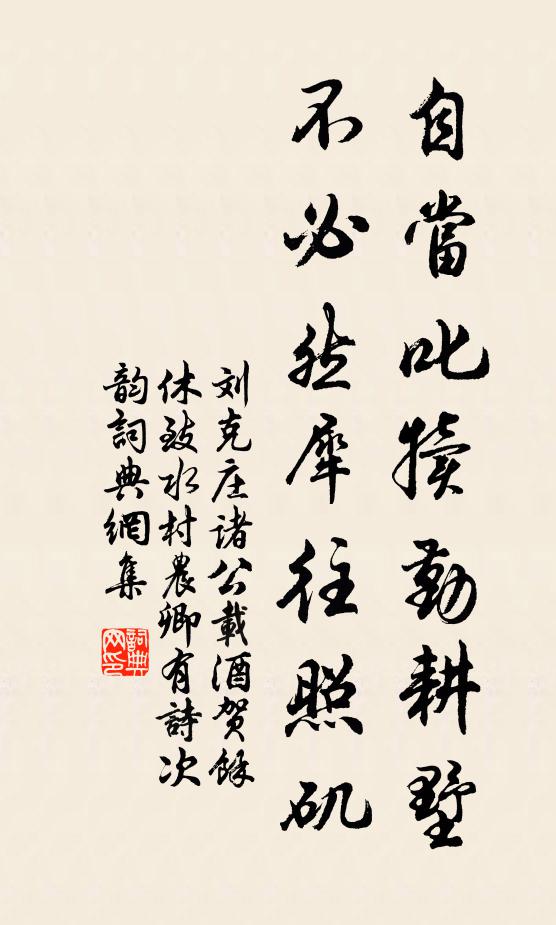 自當叱犢勤耕墅
不必然犀往照矶
刘克庄诸公載酒贺馀
休致水村農卿有詩次
韵詞典網集
詞典网印